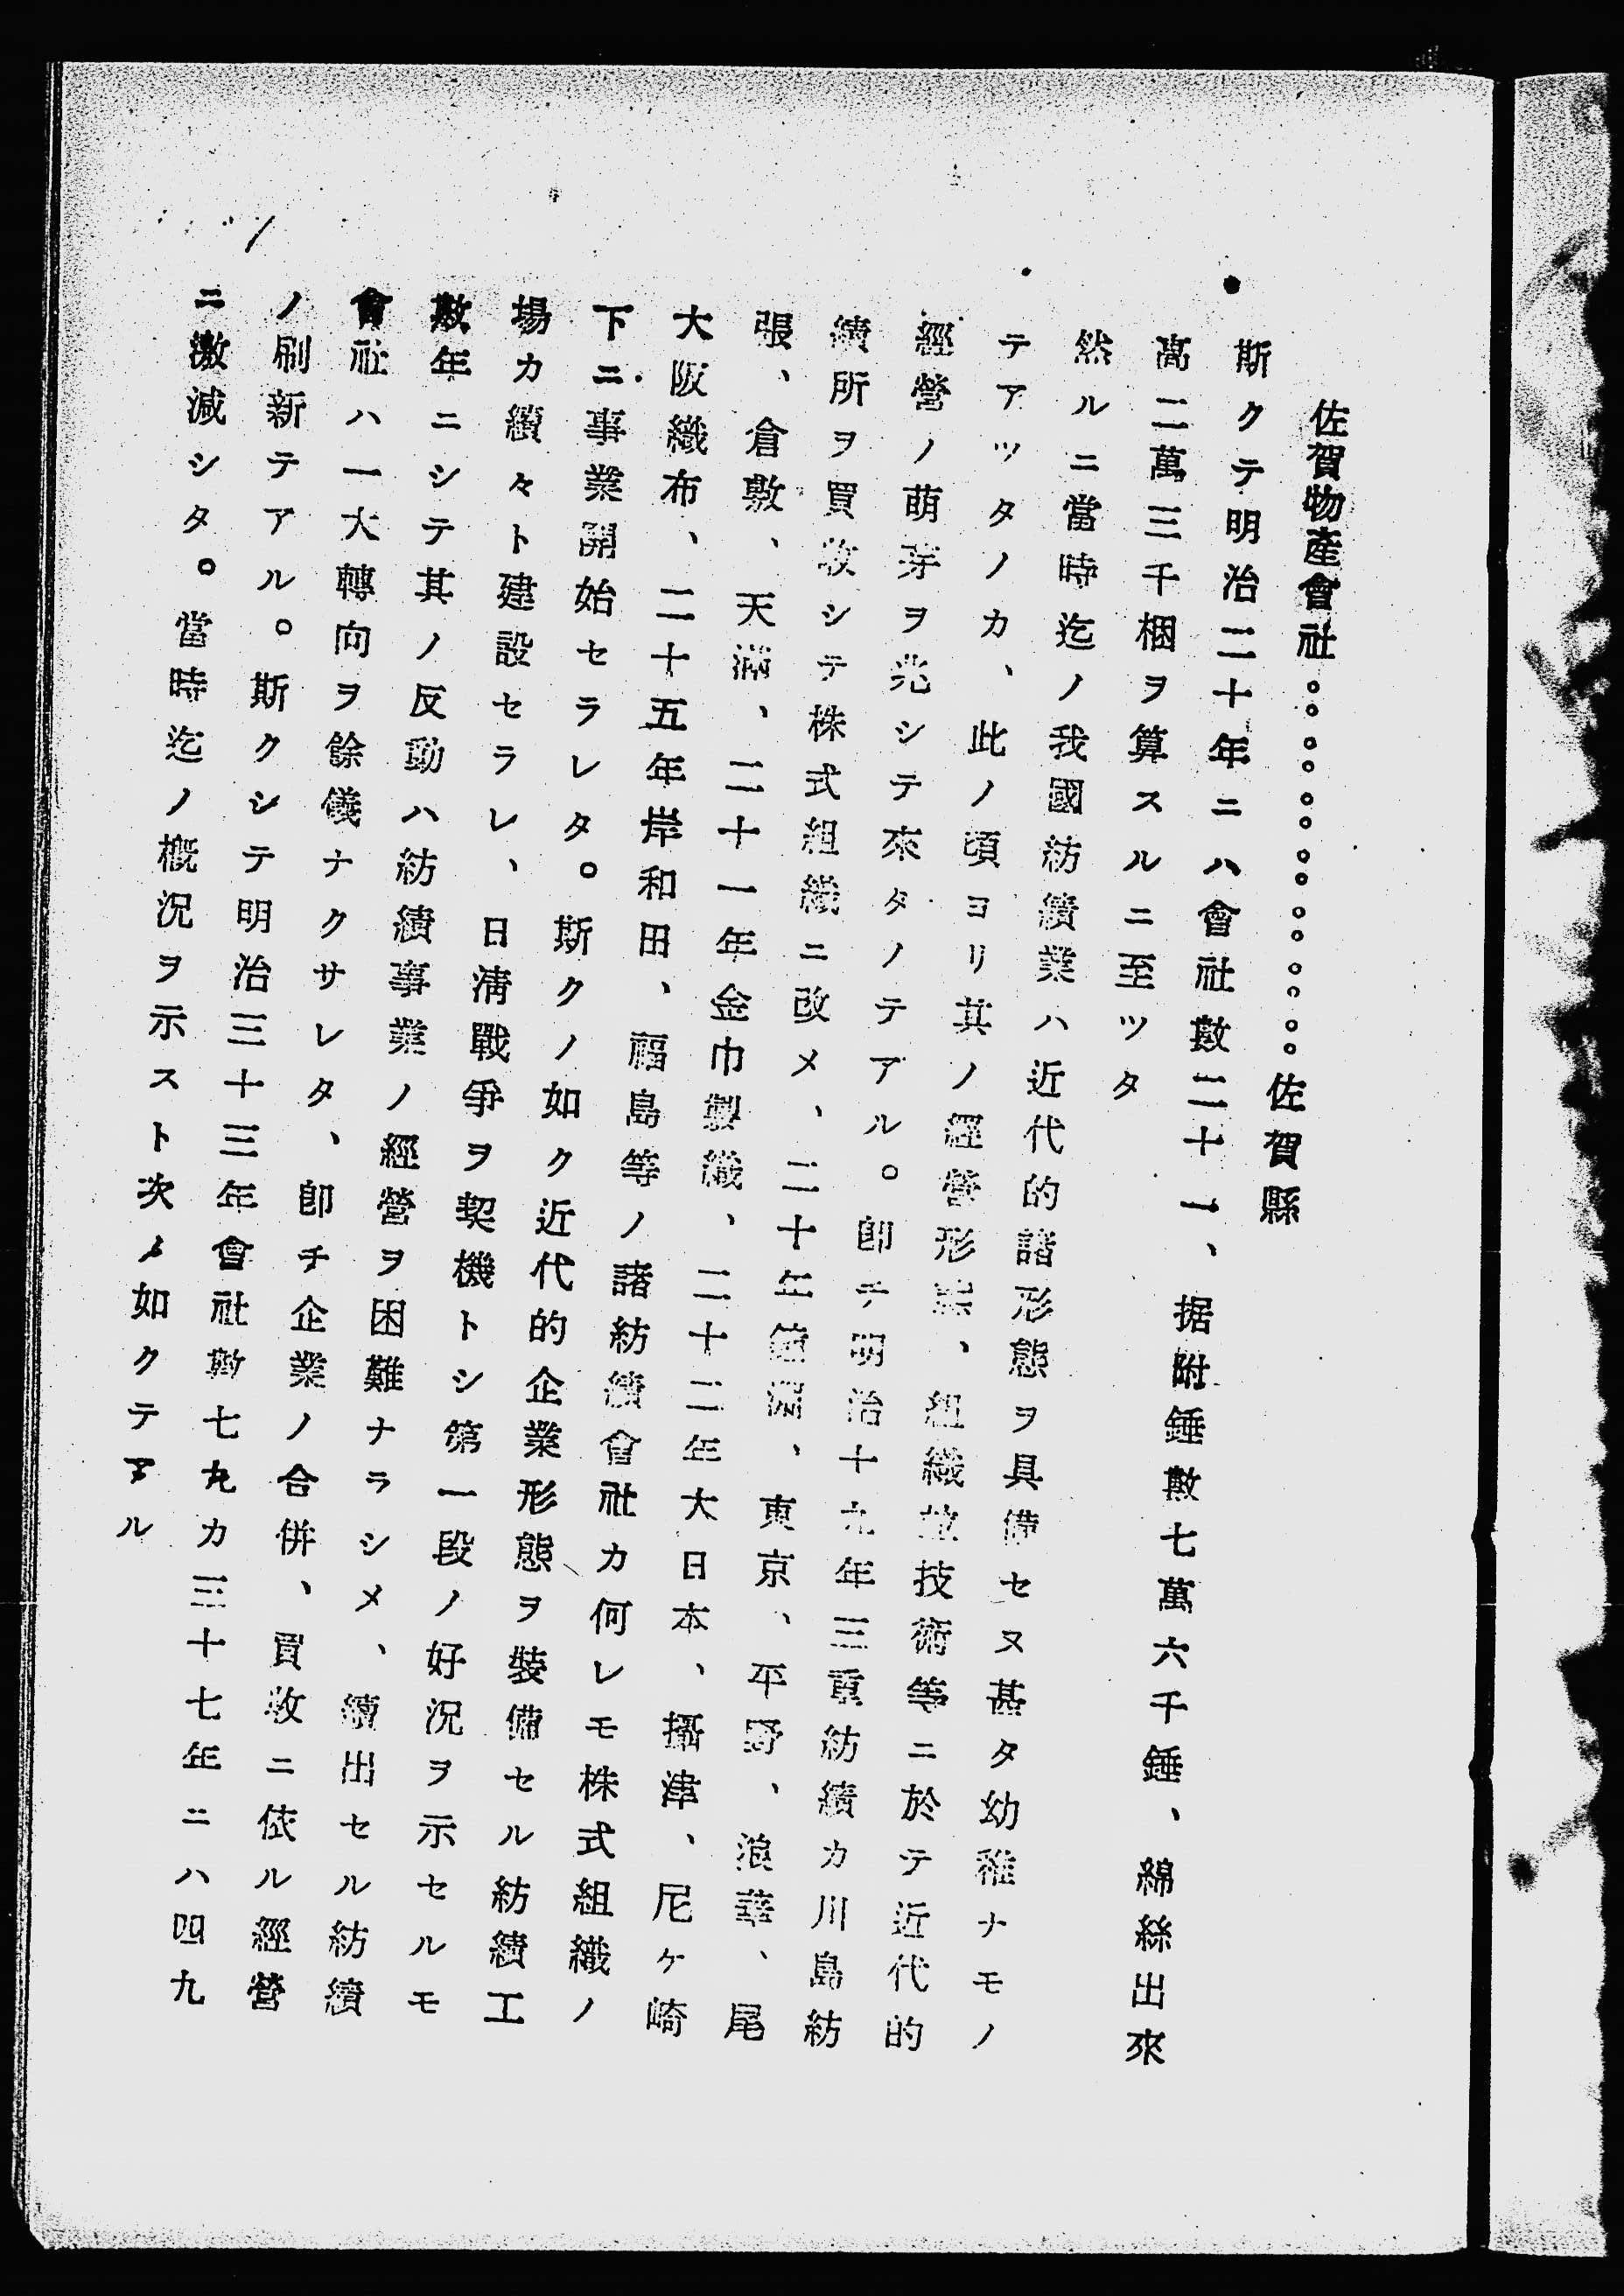 佐賀物産會社。。。。。。。。。。。。。。佐賀縣
斯クテ明治二十年ニハ會社數二十一、据附錘數七萬六千錘、綿絲出來
高二萬三千梱ヲ算スルニ至ツタ
然ルニ當時迄ノ我國紡績業ハ近代的諸形態ヲ具備セヌ甚タ幼稚ナモノ
テアツタノカ、此ノ頃ヨリ其ノ經營形態、組織並技術等ニ於テ近代的
經營ノ萌芽ヲ兆シテ來タノテアル。卽チ明治十九年三重紡績カ川島紡
績所ヲ買收シテ株式組織ニ改メ、二十年鐘淵、東京、平野、浪華、尾
張、倉敷、天滿、二十一年金巾製織、二十二年大日本、攝津、尼ヶ崎
大阪織布、二十五年岸和田、福島等ノ諸紡績會社カ何レモ株式組織ノ
下ニ事業開始セラレタ。斯クノ如ク近代的企業形態ヲ裝備セル紡績工
場カ續々ト建設セラレ、日淸戰爭ヲ契機トシ第一段ノ好況ヲ示セルモ
數年ニシテ其ノ反動ハ紡績事業ノ經營ヲ困難ナラシメ、續出セル紡績
會社ハ一大轉向ヲ餘儀ナクサレタ、卽チ企業ノ合併、買收ニ依ル經營
ノ刷新テアル。斯クシテ明治三十三年會社數七九カ三十七年ニハ四九
ニ激減シタ。當時迄ノ概況ヲ示スト次ノ如クテアル